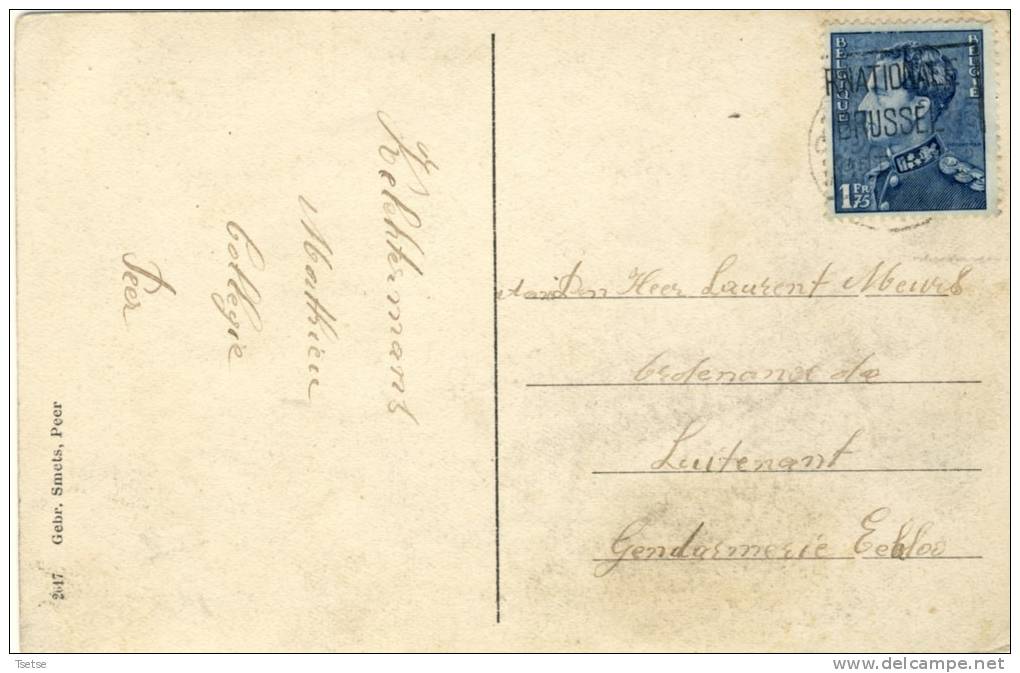 Kelchtermans
Mathieu
Collegie
Peer
2647 Gebr. Smets, Peer
BELGIQUE BELGIE
RNATIONALE
BRUSSEL
1 FR 75
Den Heer Laurent Meurs
Ordenance de
Luitenant
Gendarmerie Eekloo
Tsetse
http://www.delcampe.net